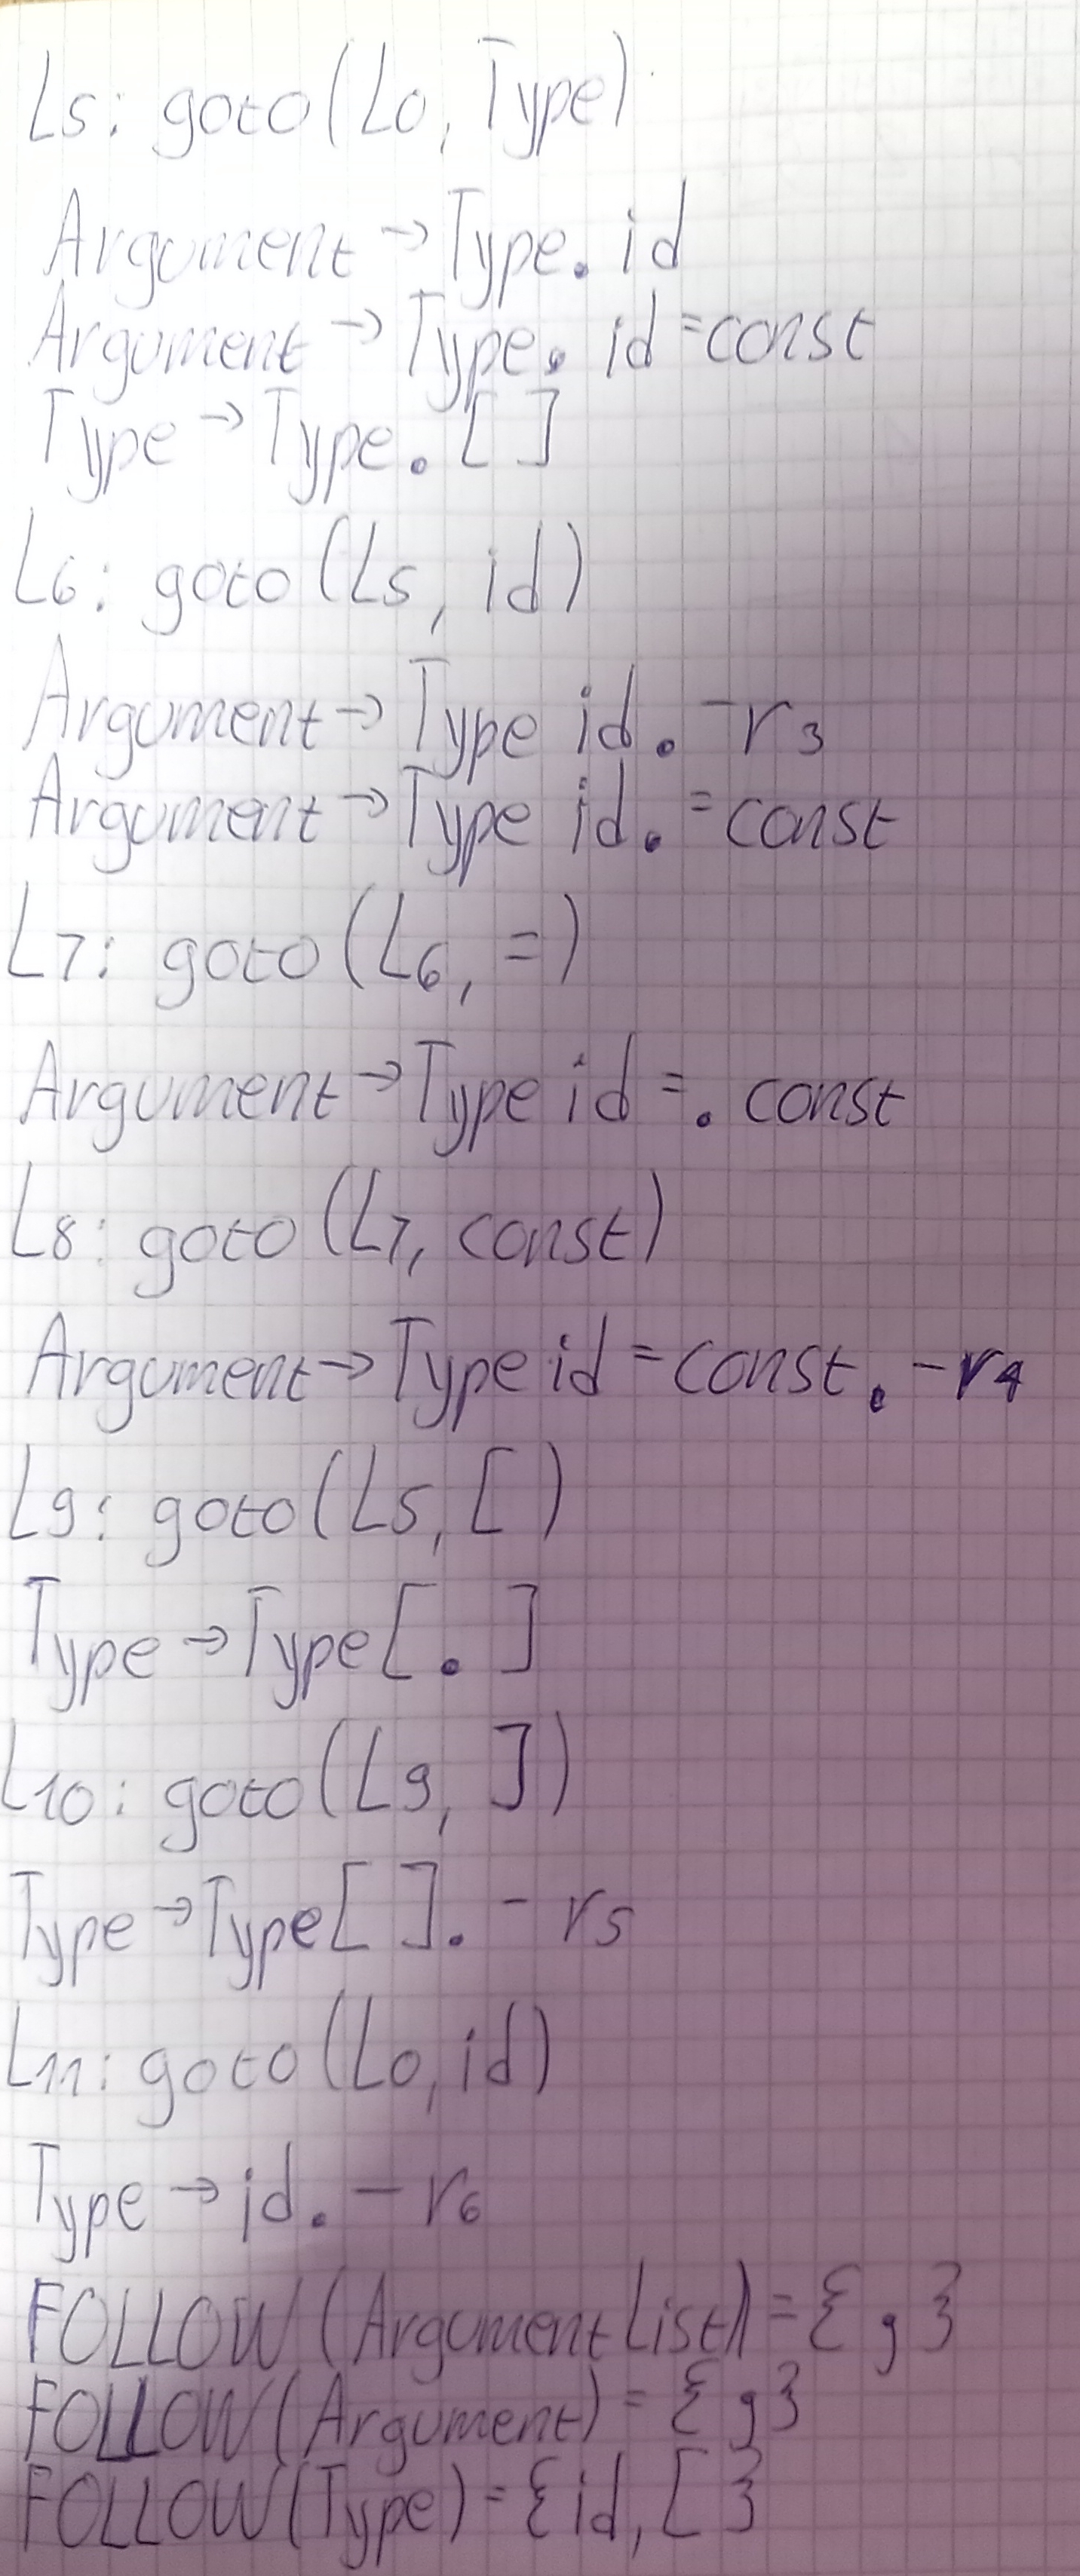 L5: goto(L0, Type)
Argument → Type. id
Argument → Type. id =const
Type → Type. [ ]
L6: goto (L5, id)
Argument → Type id. - r3
Argument → Type id. =const
L7: goto (L6, =)
Argument → Type id =. const
L8: goto (L7, const)
Argument → Type id =const. - r4
L9: goto (L5, [ )
Type → Type [ . ]
L10: goto (L9, ])
Type → Type [ ]. - r5
L11: goto (L0, id)
Type → id. - r6
FOLLOW (Argument List) = { , }
FOLLOW (Argument) = { , }
FOLLOW (Type) = { id, [ }